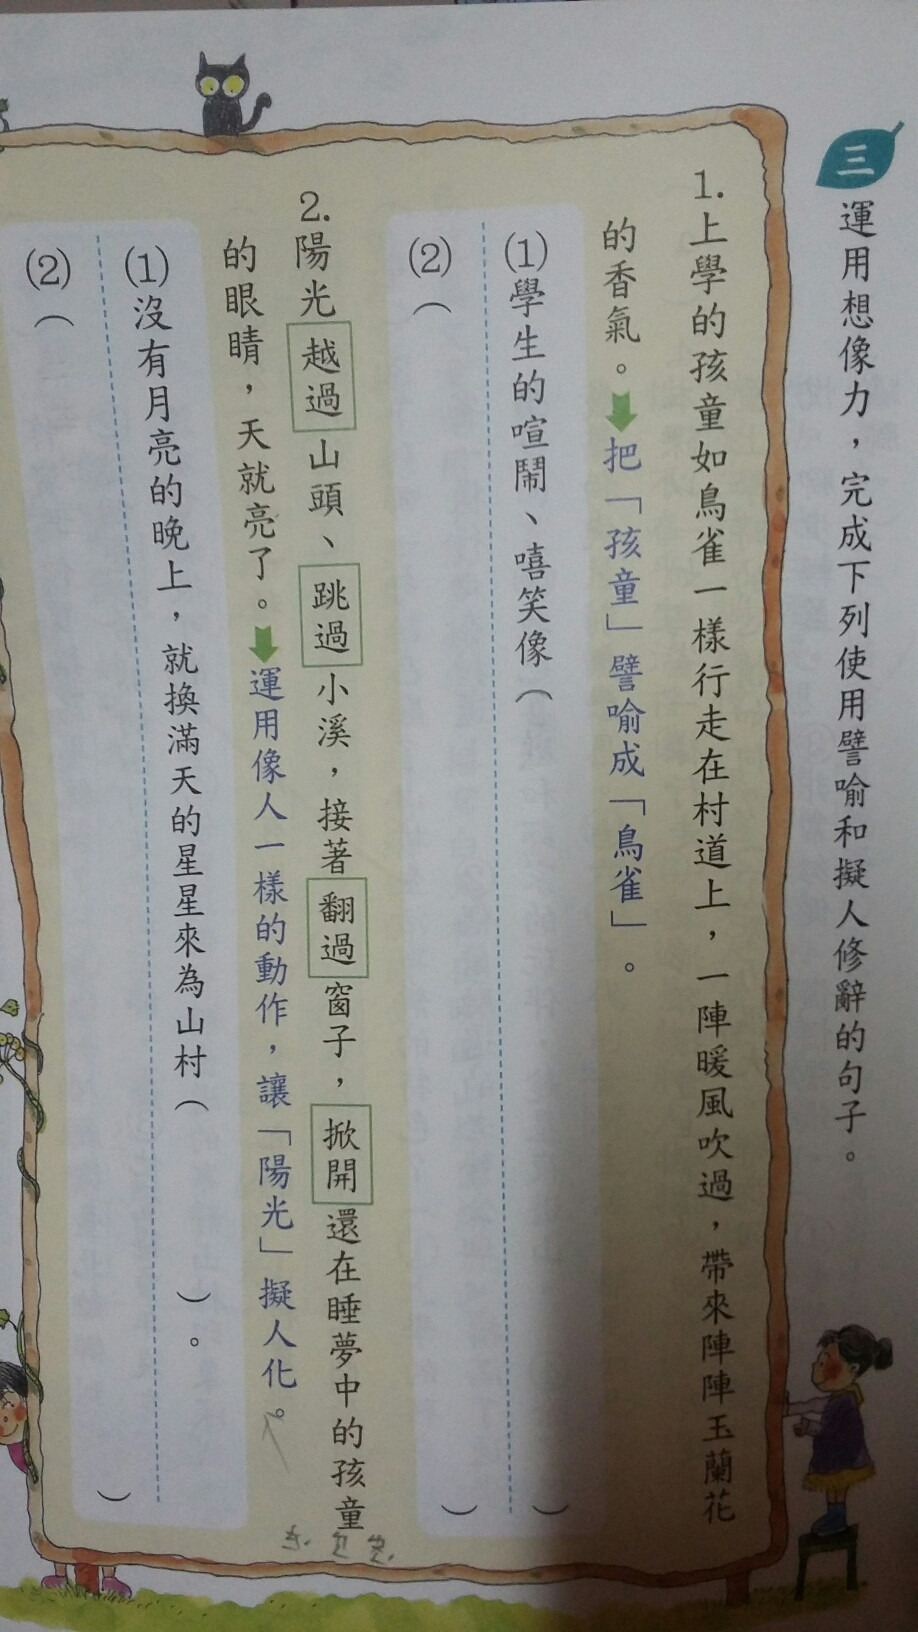 三 運用想像力，完成下列使用譬喻和擬人修辭的句子。
1.上學的孩童如鳥雀一樣行走在村道上，一陣暖風吹過，帶來陣陣玉蘭花
的香氣。把「孩童」譬喻成「鳥雀」。
(1)學生的喧鬧、嘻笑像（ ）
(2)（ ）
2.陽光越過山頭、跳過小溪，接著翻過窗子，掀開還在睡夢中的孩童
的眼睛，天就亮了。運用像人一樣的動作，讓「陽光」擬人化。
(1)沒有月亮的晚上，就換滿天的星星來為山村（ ）。
(2)（ ）